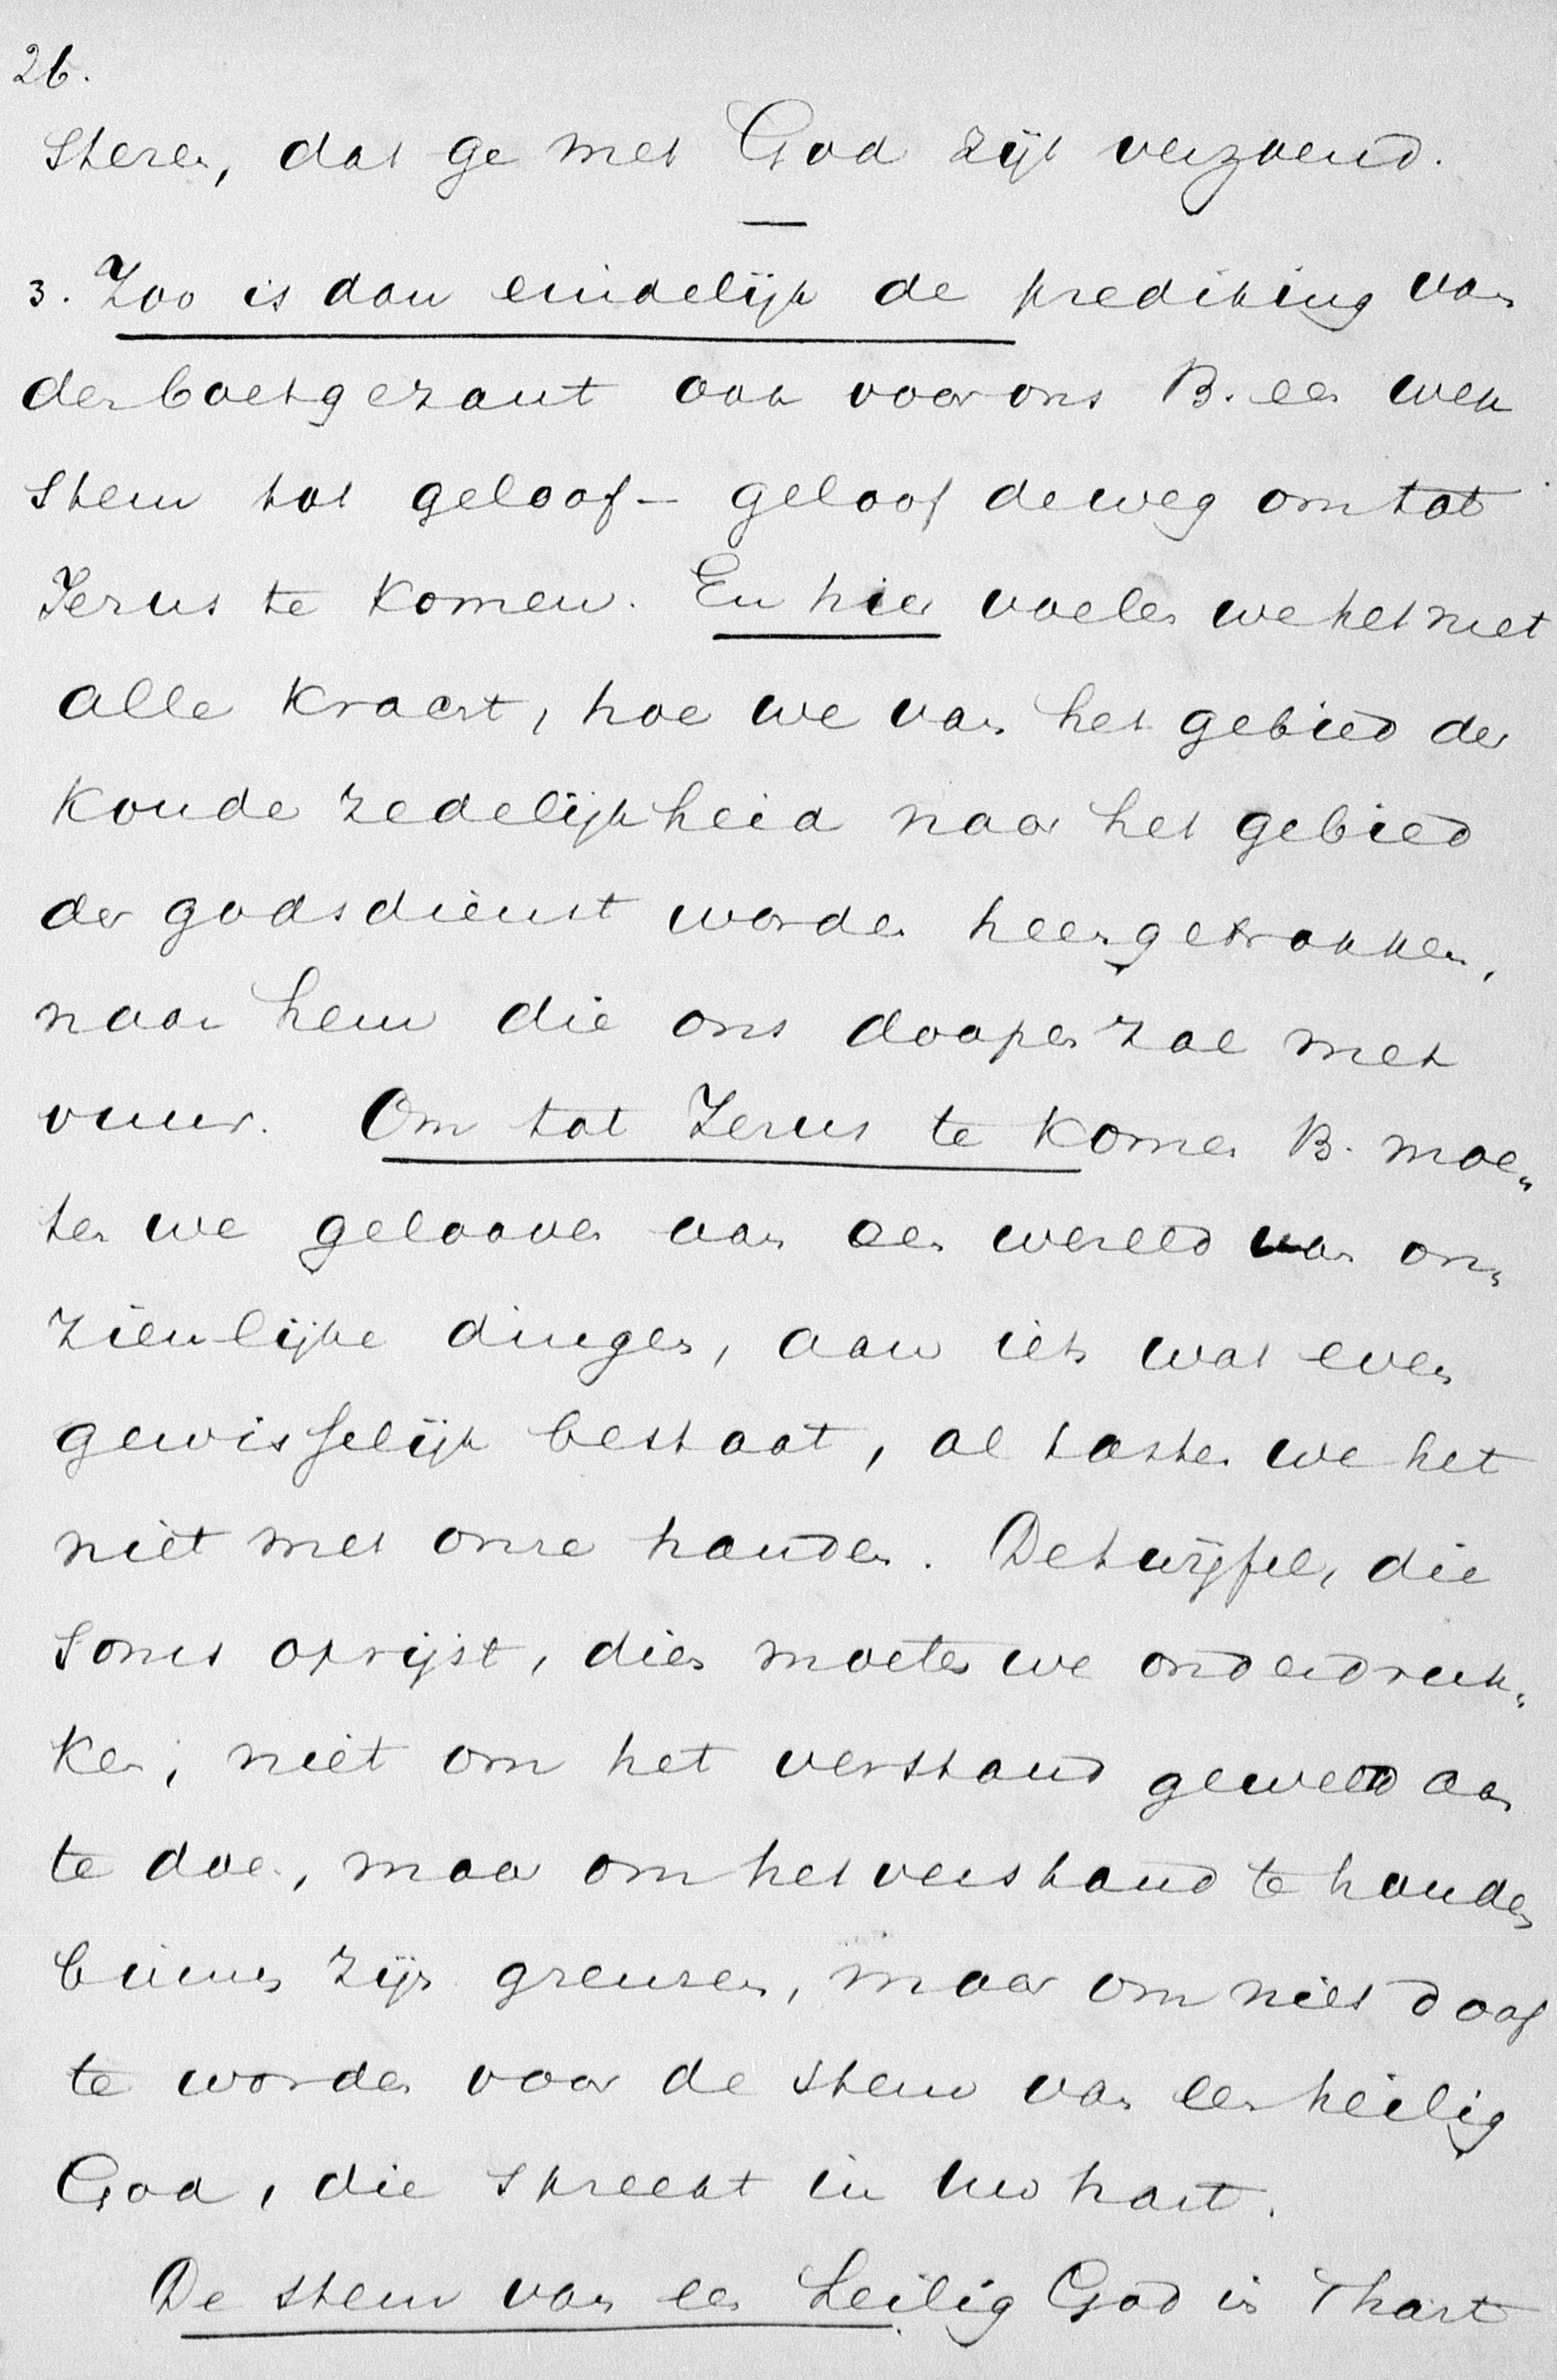 26.
steren, dat ge met God zijt verzoend.
—
3. Zoo is dan eindelijk de prediking van
den boetgezant ook voor ons B. een wek
stem tot geloof – geloof de weg om tot
Jezus te komen. En hier voelen we het met
alle kracht, hoe we van het gebied der
koude zedelijkheid naar het gebied
der godsdienst worden heengetrokken,
naar hem die ons doopen zal met
vuur. Om tot Jezus te komen B. moe„
ten we gelooven aan een wereld van on„
zienlijke dingen, aan iets wat even
gewisselijk bestaat, al tasten we het
niet met onze handen. De twijfel, die
soms oprijst, dien moeten we onderdruk„
ken, niet om het verstand geweld aan
te doen, maar om het verstand te houden
binnen zijn grenzen, maar om niet doof
te worden voor de stem van een heilig
God, die spreekt in uw hart.
De stem van een heilig God in 't hart